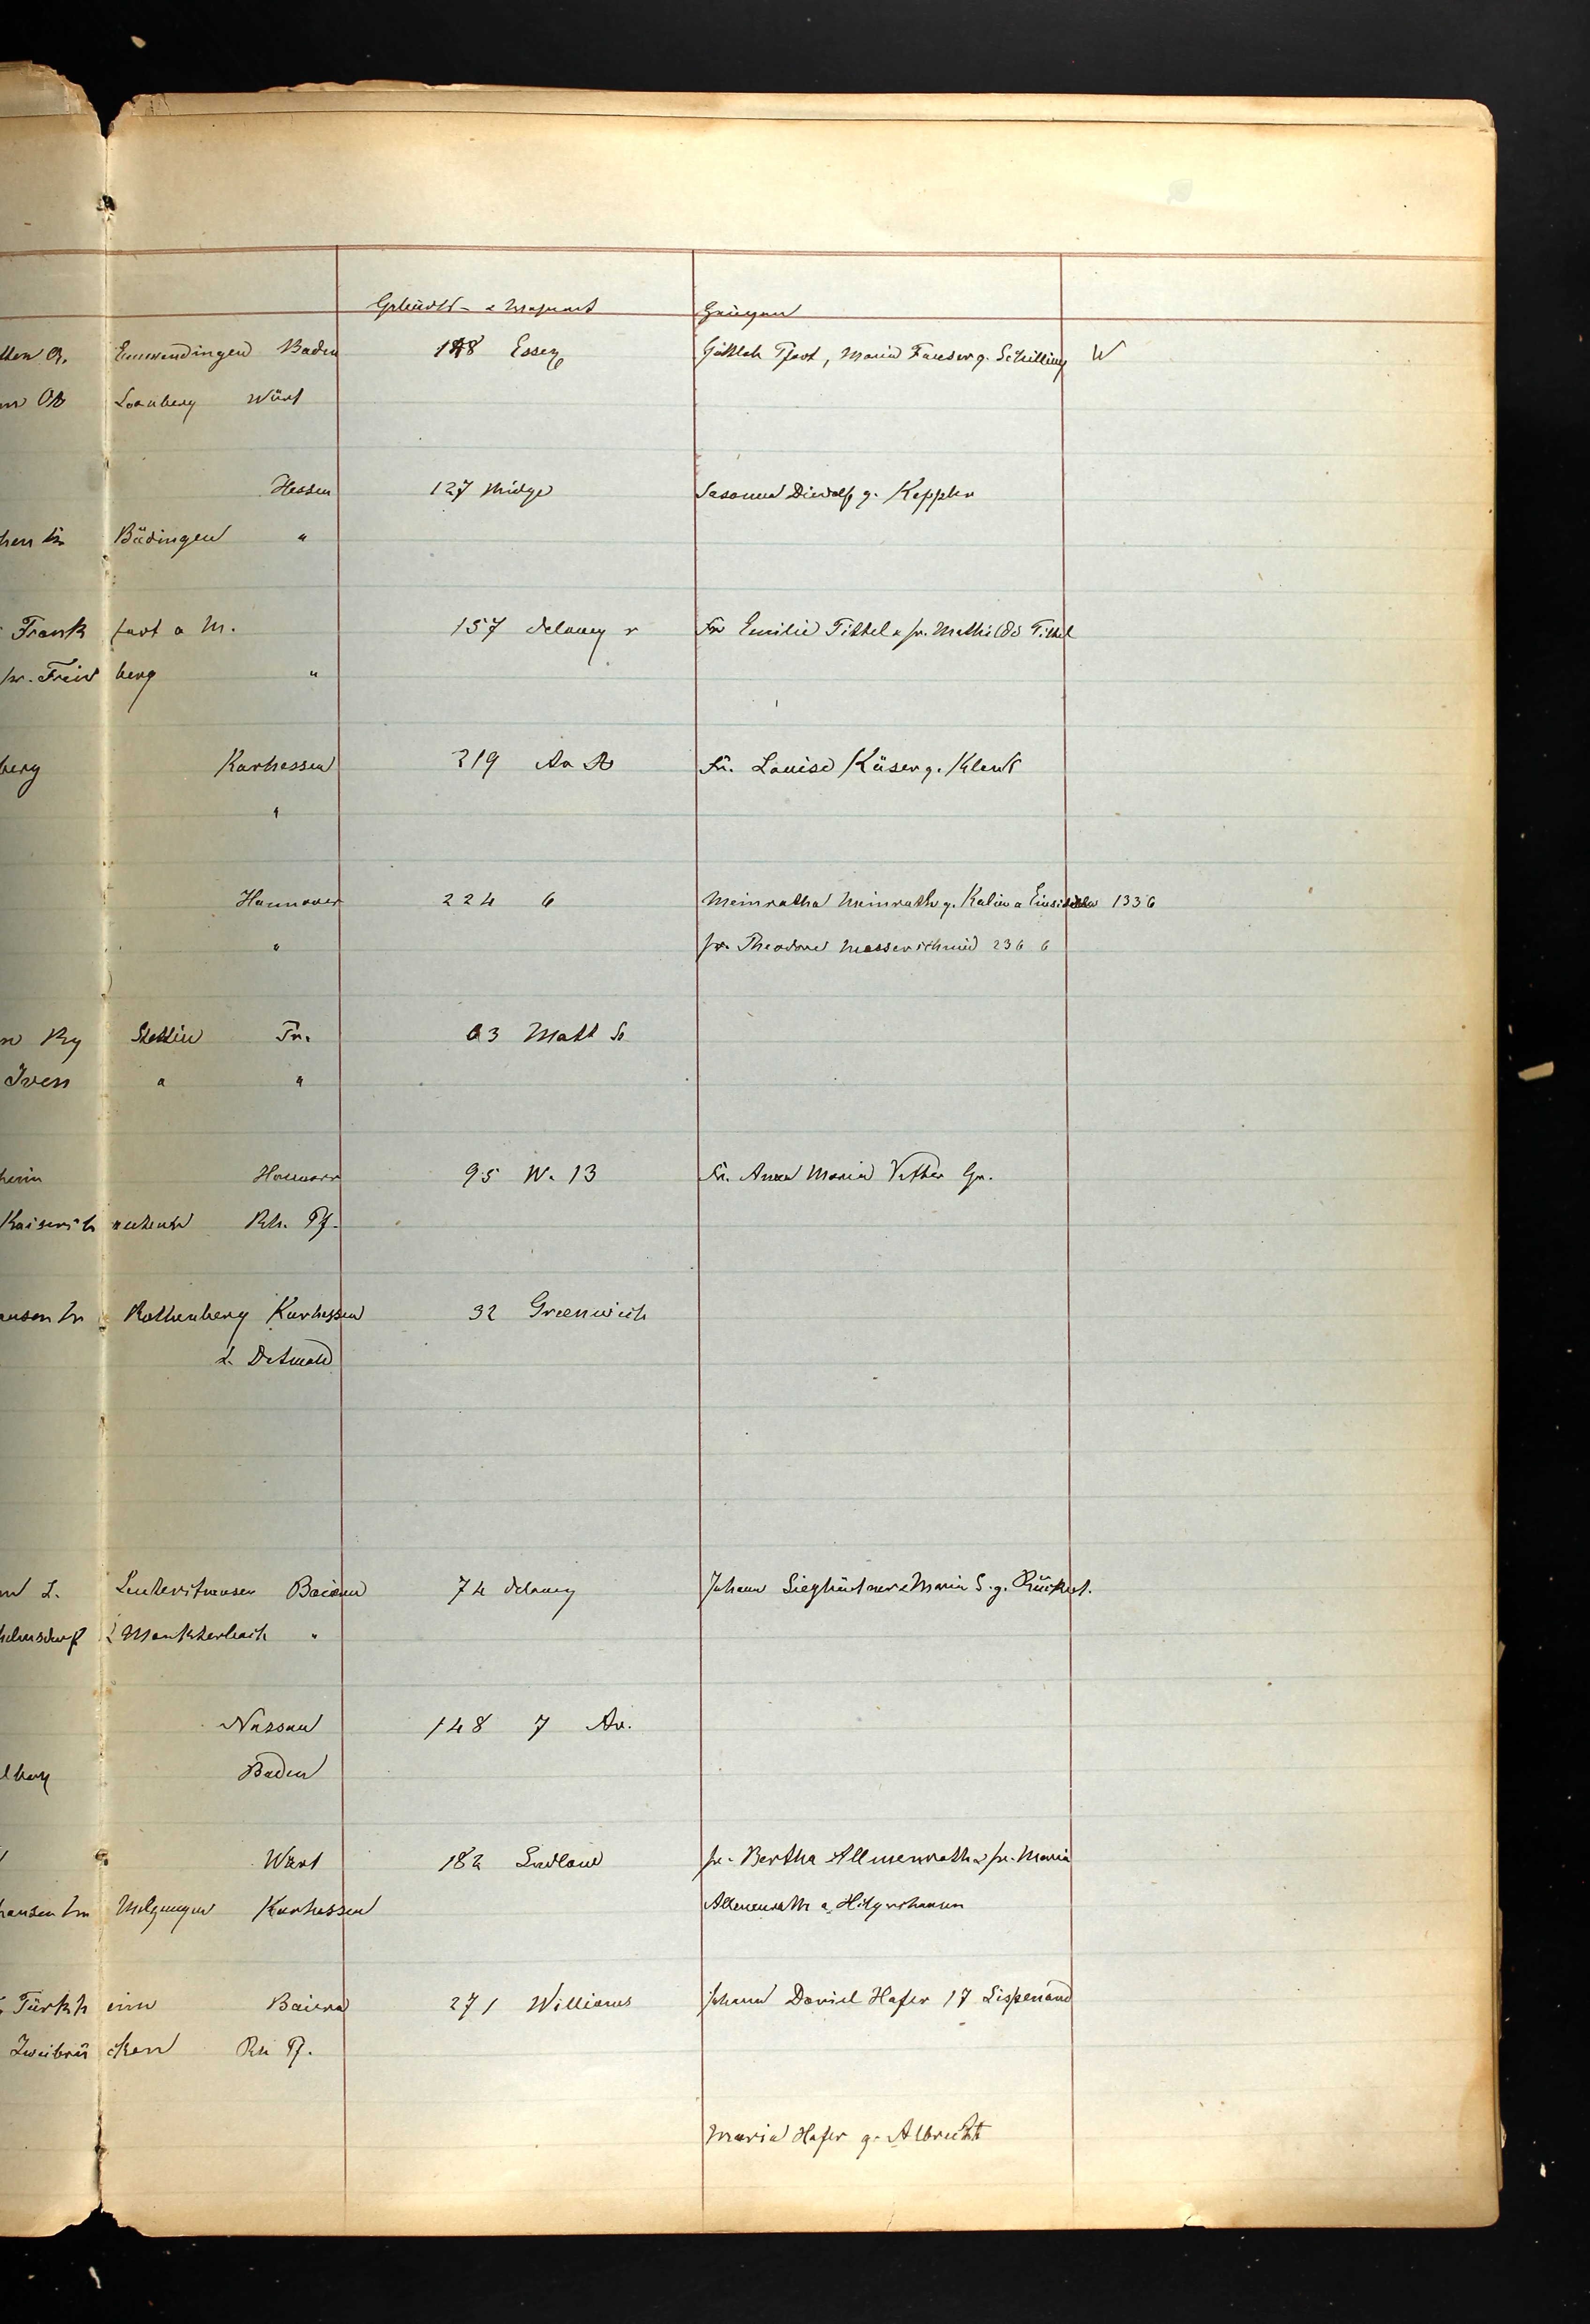 Zeugen
Emmendingen Baden 148 Essex Gottlob Pfost, Maria Fauser g. Schilling W
Leonberg Würt
Hessen 127 Ridge Susanna g. Keppler
Büdingen "
Frank furt a M. 157 Delancy r Fr Emilie Tittel u fr. Mathilde Tittel
pr. Fried berg "
berg Kurhessen 219 Av A Fr. Louise Käser g. Klenk
"
Hannover 224 6 Meinratha Meinrath g. Kalin a 133 6
" fr. Theodore Messerschmid 236 6
Rg Stettin Pr. 63 Matt So
Iven " "
heim Hannover 95 W. 13 Fr. Anna Maria Vetter Gr.
Rh. Pf.
hausen Kr Rothenberg Kurhessen 32 Greenwich
L. Detmold
L. Leutershausen Baiern 74 Delancy Johann Sieghörtner u Maria S. g. Rückert.
helmsdorf L Markterbach "
Nassau 148 7 Av.
Baden
Würt 182 Ludlow fr. Bertha Allmenrath u fr. Maria
hausen Kr Melsungen Kurhessen Allmenrath a Hilgershausen
Türkh eim Baiern 271 Williams Johann Daniel Hafer 17 Lispenard
Zweibrü cken Rh Pf.
Maria Hafer g. Albrecht